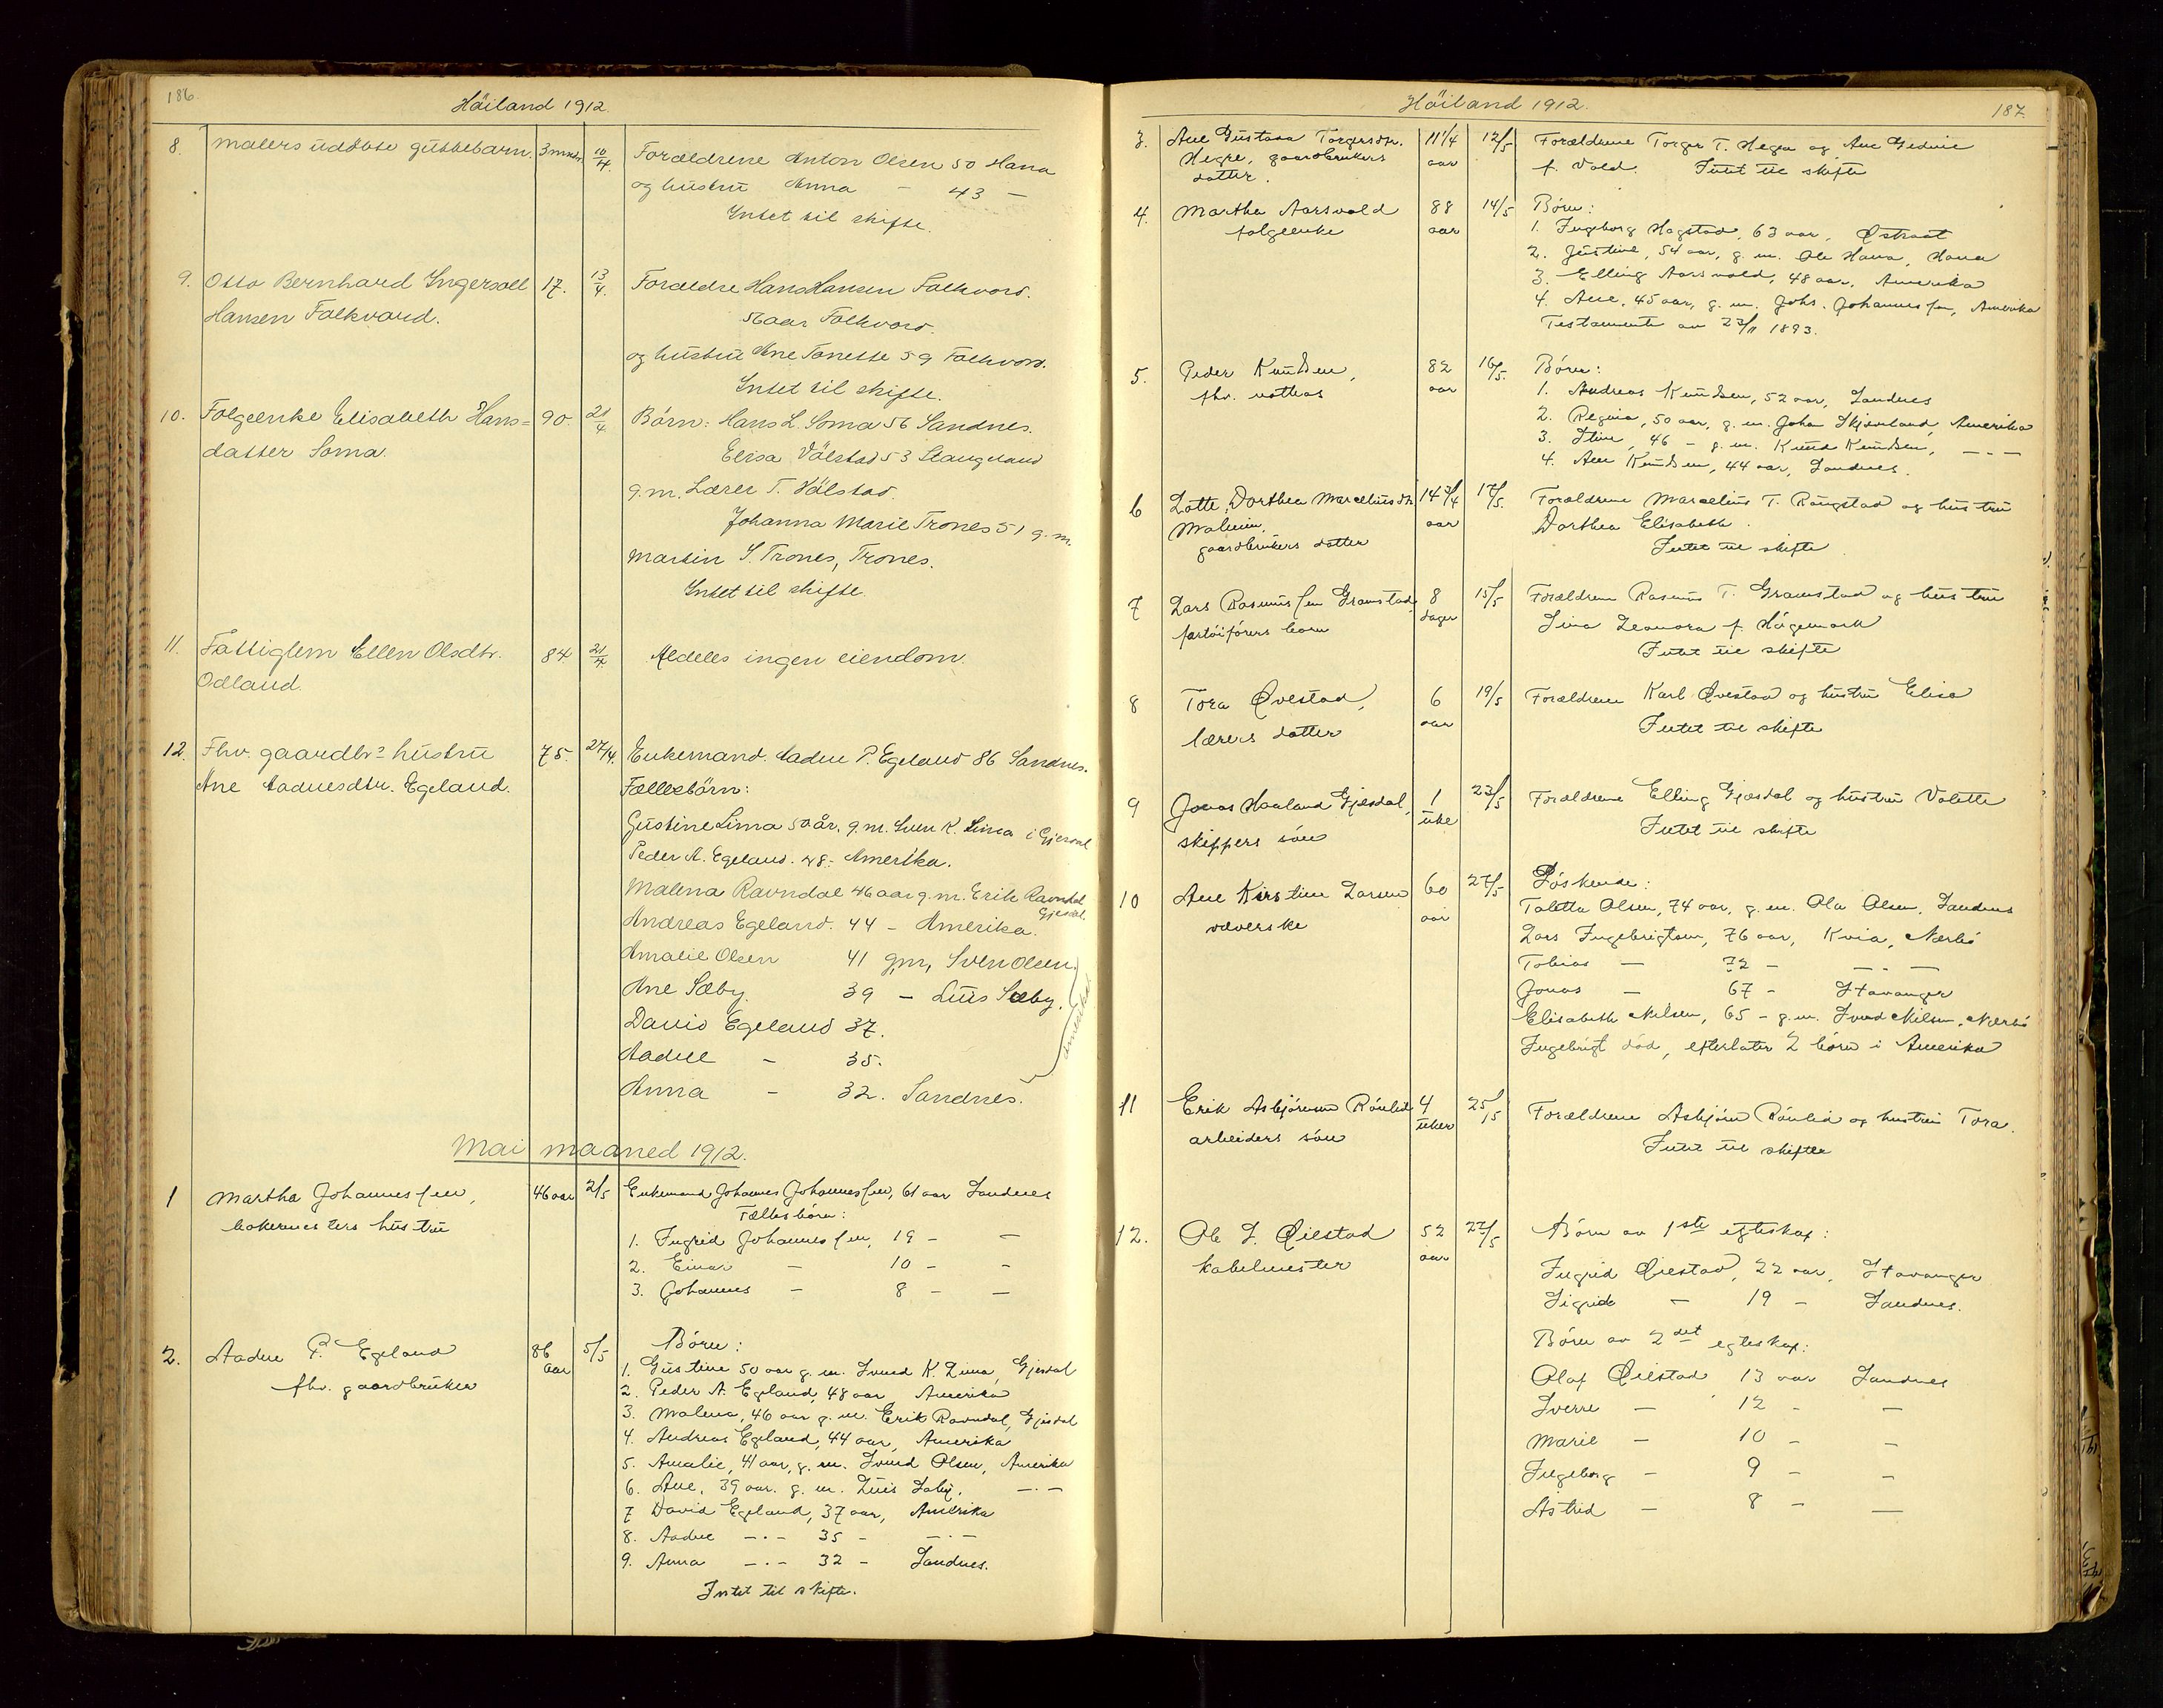 186.
Höiland 1912.
8. Malers udøbte guttebarn. 3 mndr. 10/4. Forældrene Anton Olsen 50 Hana
og hustru Anna - 43 -
Intet til skifte.
9. Otto Bernhard Ingersoll 17. 13/4. Forældre Hans Hansen Folkvord.
Hansen Folkvord. 56 aar Folkvord.
og hustru Ane Tonette 59 Folkvord.
Intet til skifte.
10. Folgeenke Elisabeth Hans= 90. 21/4. Børn: Hans L. Soma 56 Sandnes.
datter Soma. Elisa Vålstad 53
g.m. Lærer T. Vålstad.
Johanna Marie Trones 51 g.m.
Martin S. Trones, Trones.
Intet til skifte.
11. Fattiglem Ellen Olsdtr. 84. 21/4. Aldeles ingen eiendom.
Odland.
12. Fhv. gaardbr.s hustru 75. 27/4. Enkemand. Aadne P. Egeland 86 Sandnes.
Ane Aadnesdtr. Egeland. Fællesbörn:
Gustine Lima 50 år, g.m. Sven K. Lima i Gjesdal
Peder A. Egeland. 48 - Amerika.
Malena Ravndal 46 aar g.m. Erik Ravndal
Gjesdal.
Andreas Egeland. 44 - Amerika.
Amalie Olsen 41 g.m, Sven Olsen.
Ane Sæby. 39 - Luis Sæby.
David Egeland 37.
Aadne - 35.
Amerika.
Anna - 32. Sandnes.
Mai maaned 1912.
1 Martha Johannessen, 46 aar 2/5 Enkemand Johannes Johannessen, 61 aar Sandnes
bakermesters hustru Fællesbörn:
1. Ingrid Johannessen, 19 - -
2. Einar - 10 - -
3. Johannes - 8 - -
2. Aadne P. Egeland 86 5/5 Börn:
fhv. gaardbruker aar 1. Gustine 50 aar g. m. Svend K. Lima, Gjesdal
2. Peder A. Egeland, 48 aar, Amerika
3. Malena, 46 aar g. m. Erik Ravndal, Gjesdal
4. Andreas Egeland, 44 aar, Amerika
5. Amalie, 41 aar, g. m. Svend Olsen, Amerika
6. Ane, 39 aar. g. m. Luis Sæby. -.-
7 David Egeland, 37 aar, Amerika
8. Aadne -.- 35 - -.-
9. Anna -.- 32 - Sandnes.
Intet til skifte.
Höiland 1912.
187.
3. Ane Gustava Torgersdtr. 11 1/4 12/5 Forældrene Torger T. Hegre og Ane Gedine
Hegre, gaardbrukers aar f. Vold. Intet til skifte
datter.
4. Martha Aarsvold 88 14/5 Börn:
folgeenke aar 1. Ingeborg Hogstad, 63 aar, Østraat
2. Justine, 54 aar, g. m. Ole Hana, Hana
3. Elling Aarsvold, 48 aar, Amerika
4. Ane, 45 aar, g. m. Johs. Johannessen, Amerika
Testamente av 27/11 1893.
5. Peder Knudsen, 82 16/5. Börn:
fhv. aar 1. Andreas Knudsen, 52 aar, Sandnes
2. Regina, 50 aar, g. m. Johan Skjæveland, Amerika
3. Stine, 46 - g. m. Knud Knudsen, -.-
4. Ane Knudsen, 44 aar, Sandnes.
6 Lotte Dorthea Marceliusdtr. 14 3/4 17/5. Forældrene Marcelius T. Raugstad og hustru
Malmin, aar Dorthea Elisabeth.
gaardbrukers datter Intet til skifte
7 Lars Rasmussen Gramstad, 8 15/5 Forældrene Rasmus T. Gramstad og hustru
fartöiförers barn dager Sina Leonora f. Högemark
Intet til skifte
8 Tora Qvestad, 6 19/5 Forældrene Karl Qvestad og hustru Elise
lærers datter aar Intet til skifte
9 Jonas Haaland Gjesdal, 1 23/5 Forældrene Elling Gjesdal og hustru Valette
skippers sön uke Intet til skifte
10 Ane Kirstine Larsen 60 27/5 Söskende:
væverske aar Taletta Olsen, 74 aar, g. m. Ola Olsen, Sandnes
Lars Ingebrigtsen, 76 aar, Kvia, Nærbö
Tobias - 72 - -.-
Jonas - 67 - Stavanger
Elisabeth Nilsen, 65 - g. m. Svend Nilsen, Nærbö
Ingebrigt död, efterlater 2 börn i Amerika
11 Erik Asbjörnsen Rönlid 4 25/5 Forældrene Asbjörn Rönlid og hustru Tora.
arbeiders sön uker Intet til skifte
12. Ole J. Øilestad 52 27/5 Börn av 1ste egteskap:
kabelmester aar Ingrid Øilestad, 22 aar, Stavanger
Sigrid - 19 - Sandnes.
Börn av 2det egteskap:
Olaf Øilestad 13 aar Sandnes
Sverre - 12 - -
Marie - 10 - -
Ingeborg - 9 - -
Astrid - 8 - -